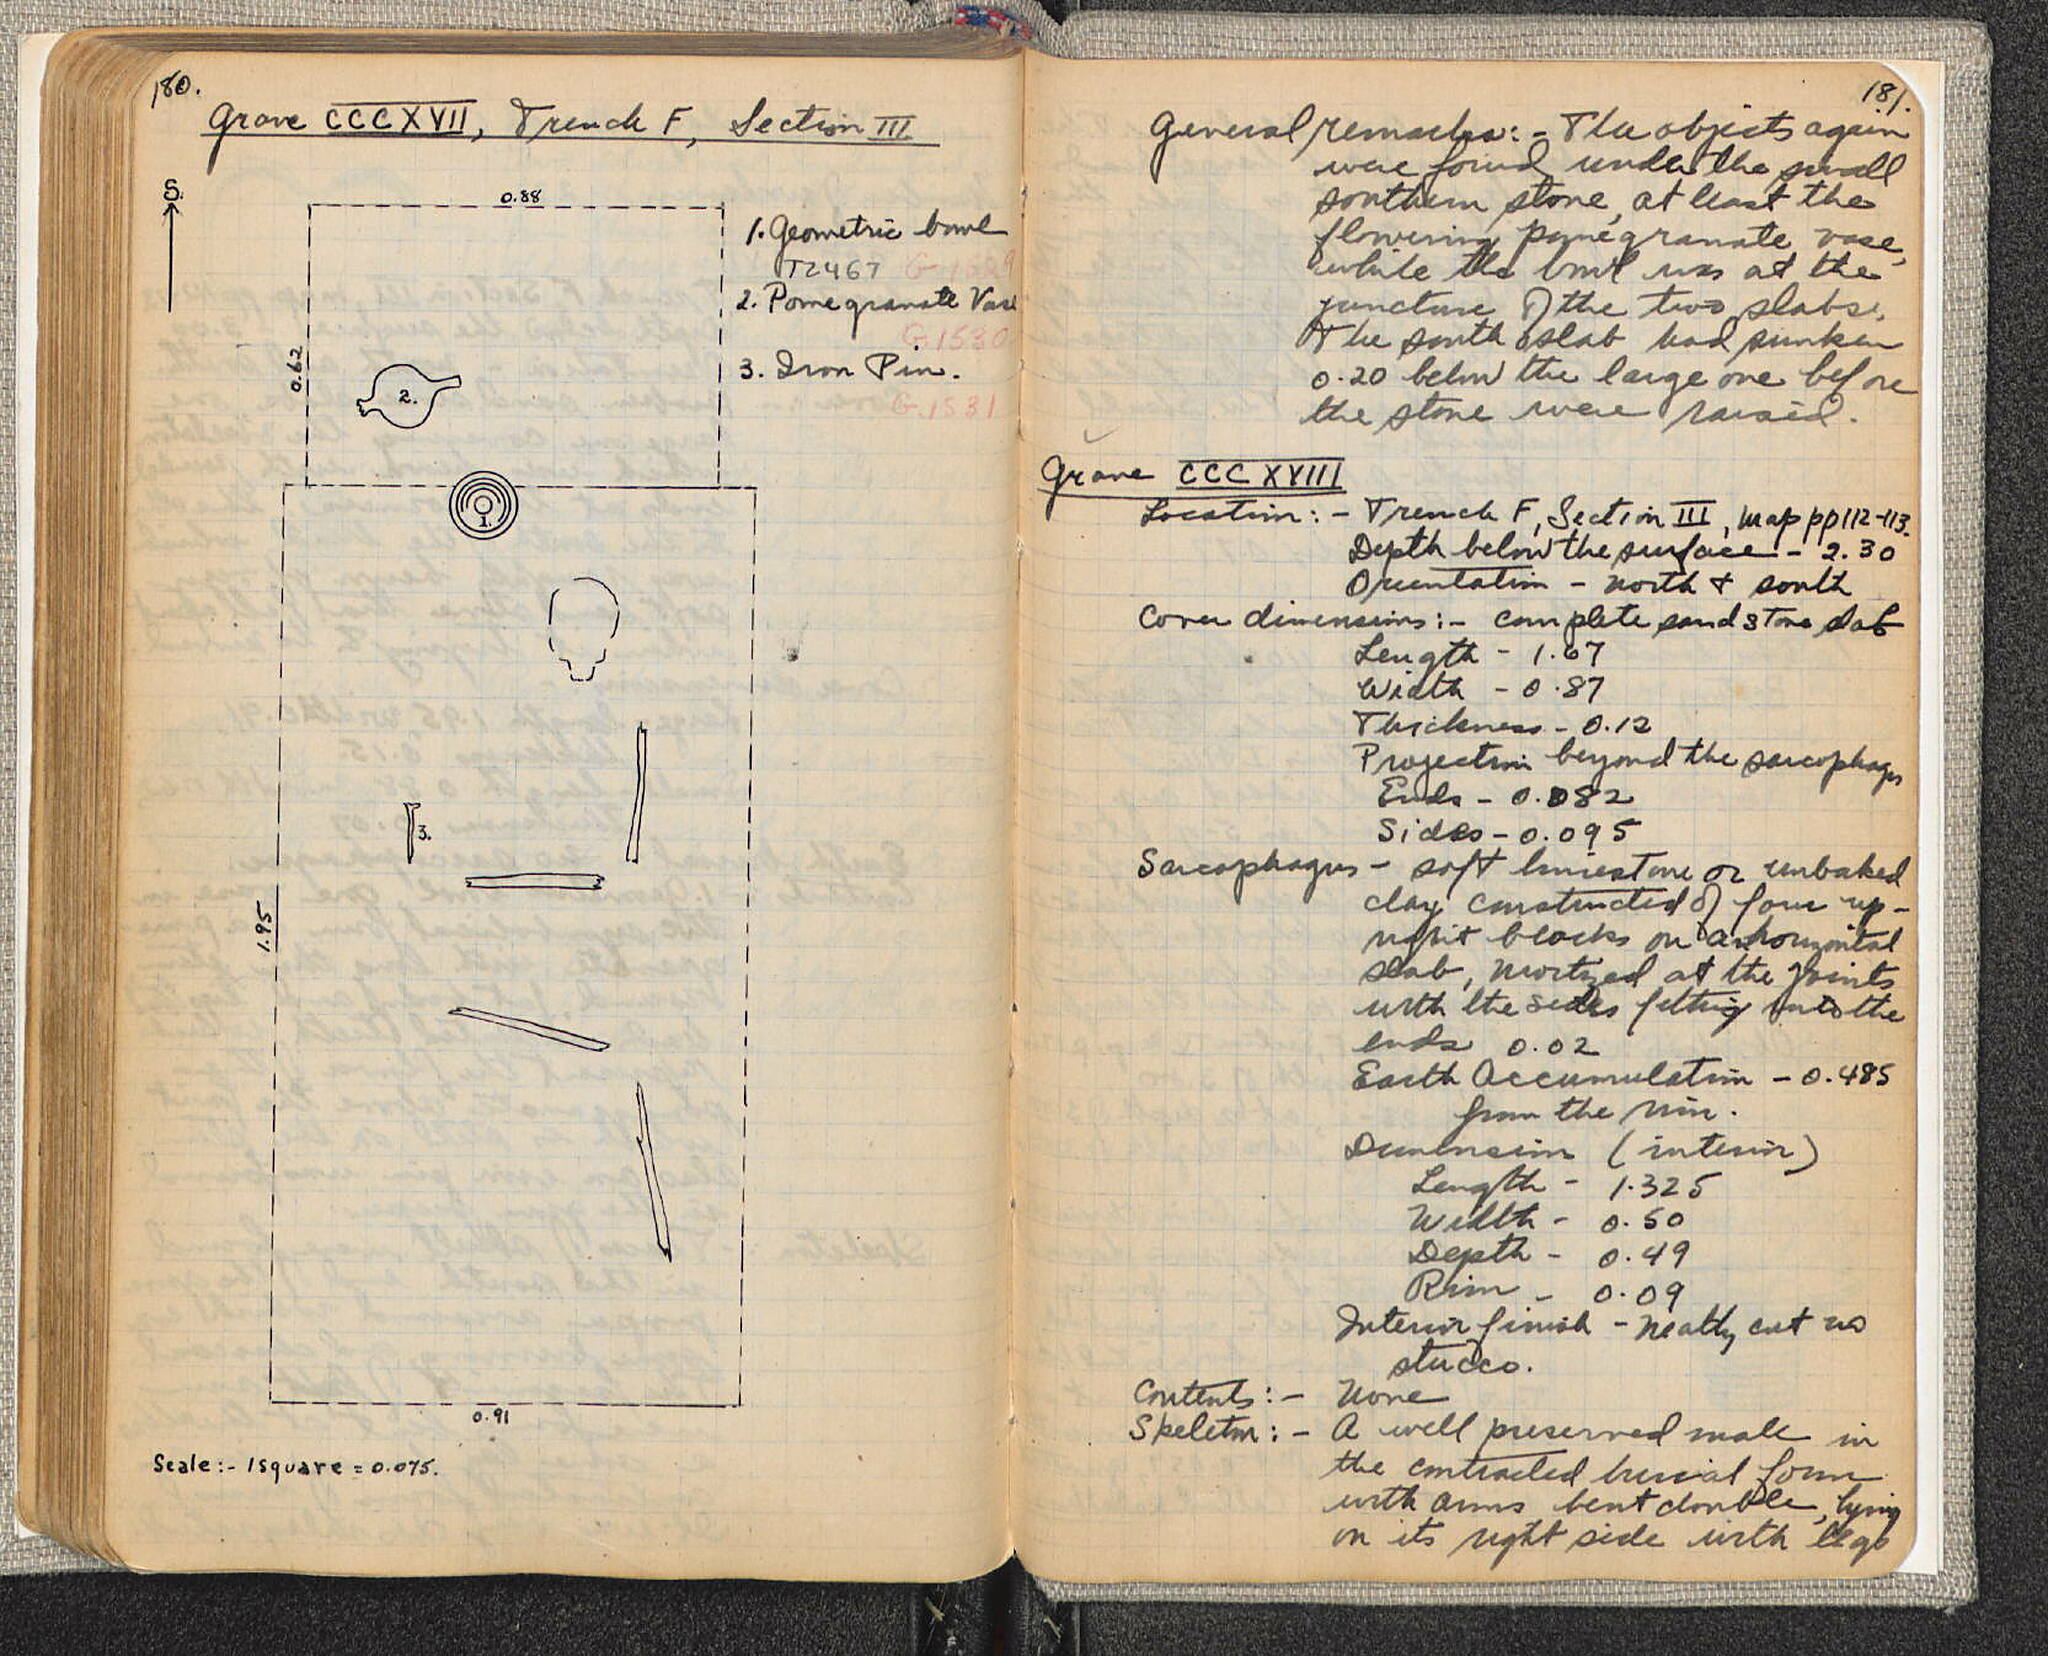 180.
Grave CCCXVII, Trench F, Section III
S.
0.88
1. Geometric bowl
T2467 G-1529
2. Pomegranate Vase
G.1530
0.62
3. Iron Pin.
G.1531
2.
1.
3.
1.95
0.91
Scale:- 1 square = 0.075.
181.
General remarks:- The objects again
were found under the small
southern stone, at least the
flowering pomegranate vase,
while the bowl was at the
juncture of the two slabs.
The south slab had sunken
0.20 below the large one before
the stone were raised.
Grave CCCXVIII
Location:- Trench F, Section III, map pp 112-113.
Depth below the surface - 2.30
Orientation - north & south
Cover dimensions:- complete sandstone slab
Length - 1.67
Width - 0.87
Thickness - 0.12
Projection beyond the sarcophagus
Ends - 0.082
Sides - 0.095
Sarcophagus - soft limestone or unbaked
clay constructed of four up-
right blocks on a horizontal
slab, mortized at the joints
with the sides fitting into the
ends 0.02
Earth Accumulation - 0.485
from the rim.
Dimension (interior)
Length - 1.325
Width - 0.50
Depth - 0.49
Rim - 0.09
Interior finish - neatly cut no
stucco.
Contents:- None
Skeleton:- A well preserved male in
the contracted burial form
with arms bent double, lying
on its right side with legs